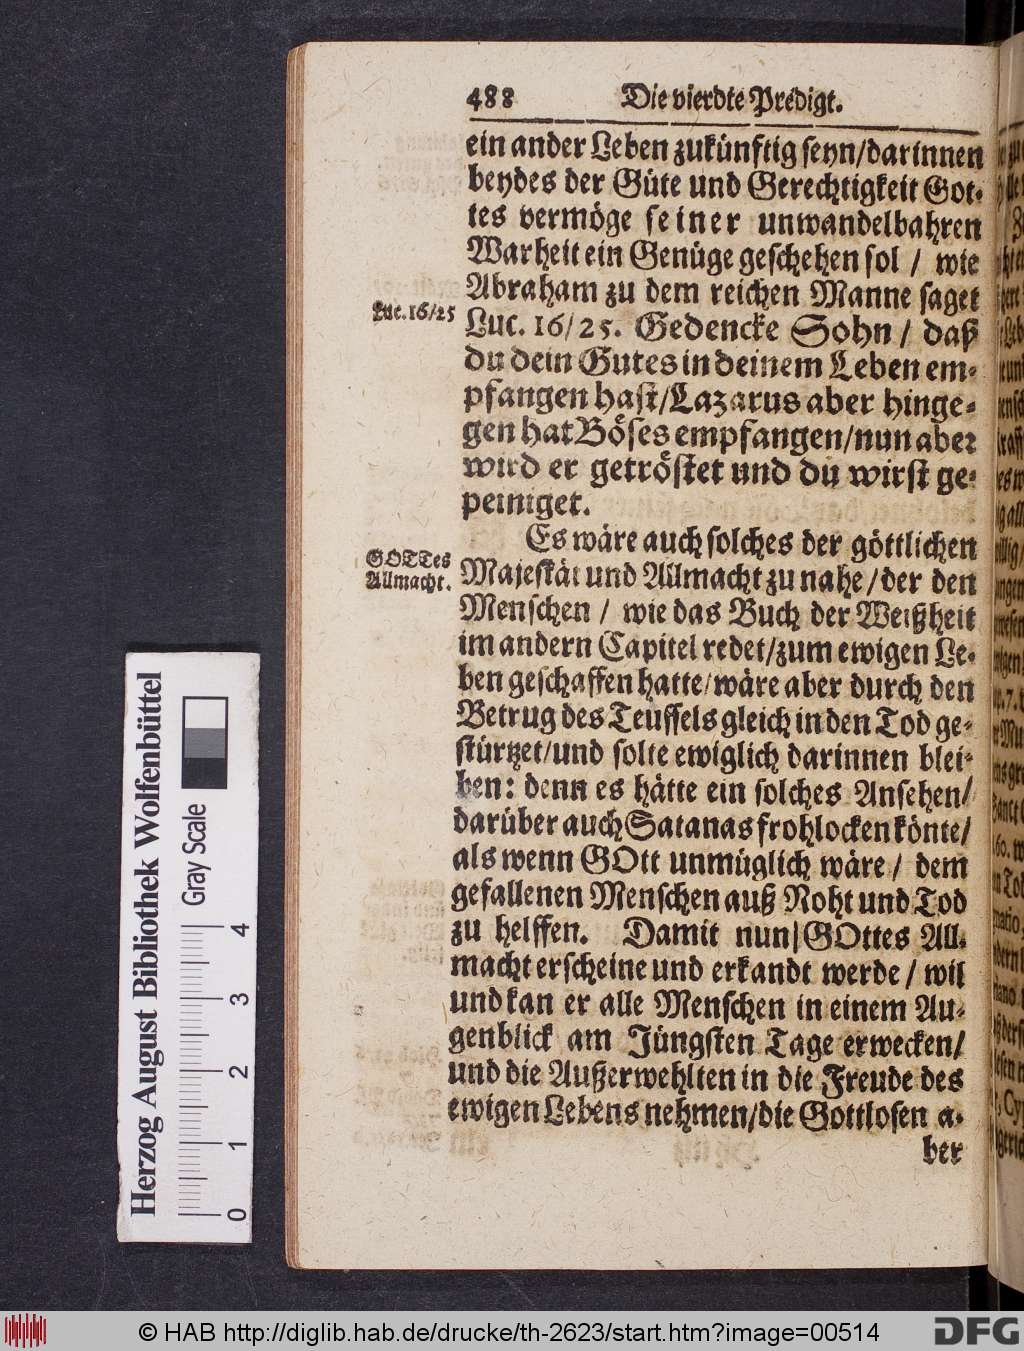 488 Die vierdte Predigt.
ein ander Leben zukünftig seyn/darinnen
beydes der Güte und Gerechtigkeit Got-
tes vermöge seiner unwandelbahren
Warheit ein Genüge geschehen sol / wie
Abraham zu dem reichen Manne saget
Luc. 16/25
Luc. 16/25. Gedencke Sohn / daß
du dein Gutes in deinem Leben em-
pfangen hast/Lazarus aber hinge-
gen hat Böses empfangen/nun aber
wird er getröstet und du wirst ge-
peiniget.
Es wäre auch solches der göttlichen
GOTTes
Allmacht.
Majestät und Allmacht zu nahe/der den
Menschen / wie das Buch der Weißheit
im andern Capitel redet/zum ewigen Le-
ben geschaffen hatte/wäre aber durch den
Betrug des Teuffels gleich in den Tod ge-
stürtzet/und solte ewiglich darinnen blei-
ben: denn es hätte ein solches Ansehen/
darüber auch Satanas frohlocken könte/
als wenn GOtt unmüglich wäre / dem
gefallenen Menschen auß Noht und Tod
zu helffen. Damit nun/GOttes All-
macht erscheine und erkandt werde / wil
und kan er alle Menschen in einem Au-
genblick am Jüngsten Tage erwecken/
und die Außerwehlten in die Freude des
ewigen Lebens nehmen/die Gottlosen a-
ber
Herzog August Bibliothek Wolfenbüttel
Gray Scale
0 1 2 3 4
© HAB http://diglib.hab.de/drucke/th-2623/start.htm?image=00514
DFG